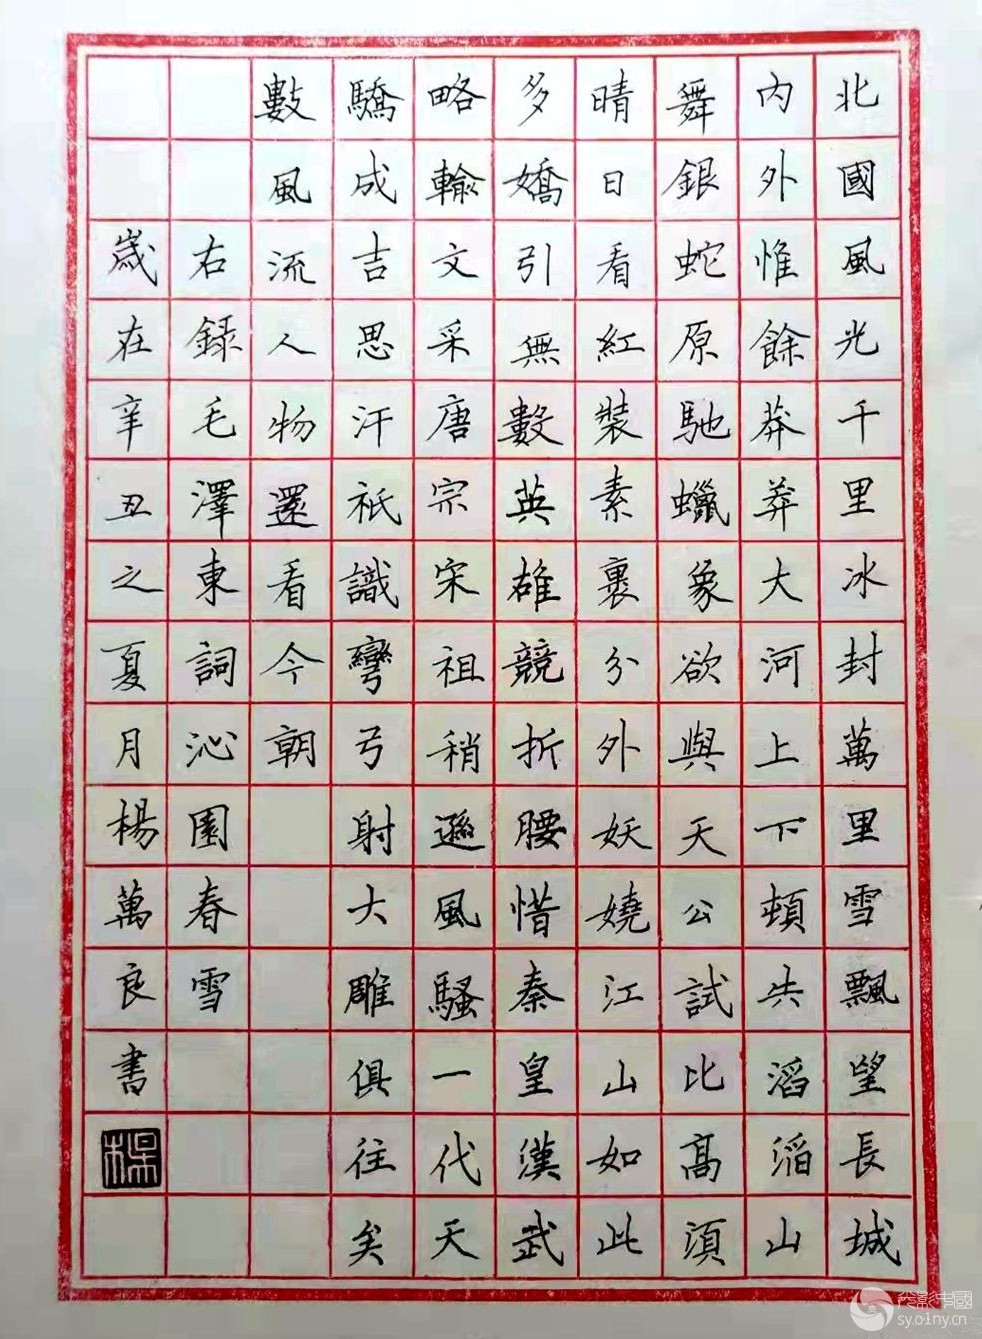 北國風光千里冰封萬里雪飄望長城
內外惟餘莽莽大河上下頓失滔滔山
舞銀蛇原馳蠟象欲與天公試比高須
晴日看紅裝素裹分外妖嬈江山如此
多嬌引無數英雄競折腰惜秦皇漢武
略輸文采唐宗宋祖稍遜風騷一代天
驕成吉思汗祇識彎弓射大雕俱往矣
數風流人物還看今朝
右録毛澤東詞沁園春雪
歲在辛丑之夏月楊萬良書
光影中國
sy.o1ny.cn